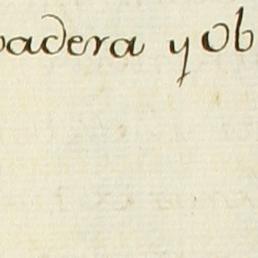 badera y Ob